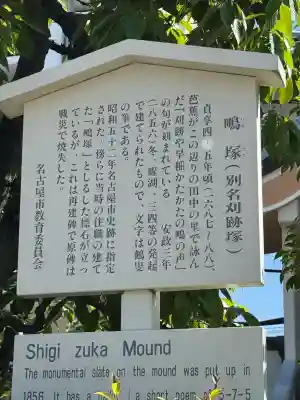 鴫塚（別名刈跡塚）
貞享四、五年頃（一六八七～八八）、
芭蕉がこの辺りの田中の里で詠ん
だ「刈跡や早稲かたかたの鴫の声」
の句が刻まれている。安政三年
（一八五六）冬、曙湖、三四等の発起
で建てられたもので、文字は鶴叟
の筆である。
昭和五十二年名古屋市史跡に指定
された。傍らに当時の住職の建て
た「鴫塚」としるした標石が立っ
ているが、これは再建碑で原碑は
戦災で焼失した。
名古屋市教育委員会
Shigi zuka Mound
The monumental slate on the mound was put up in
1856. It has a short poem of 5-7-5